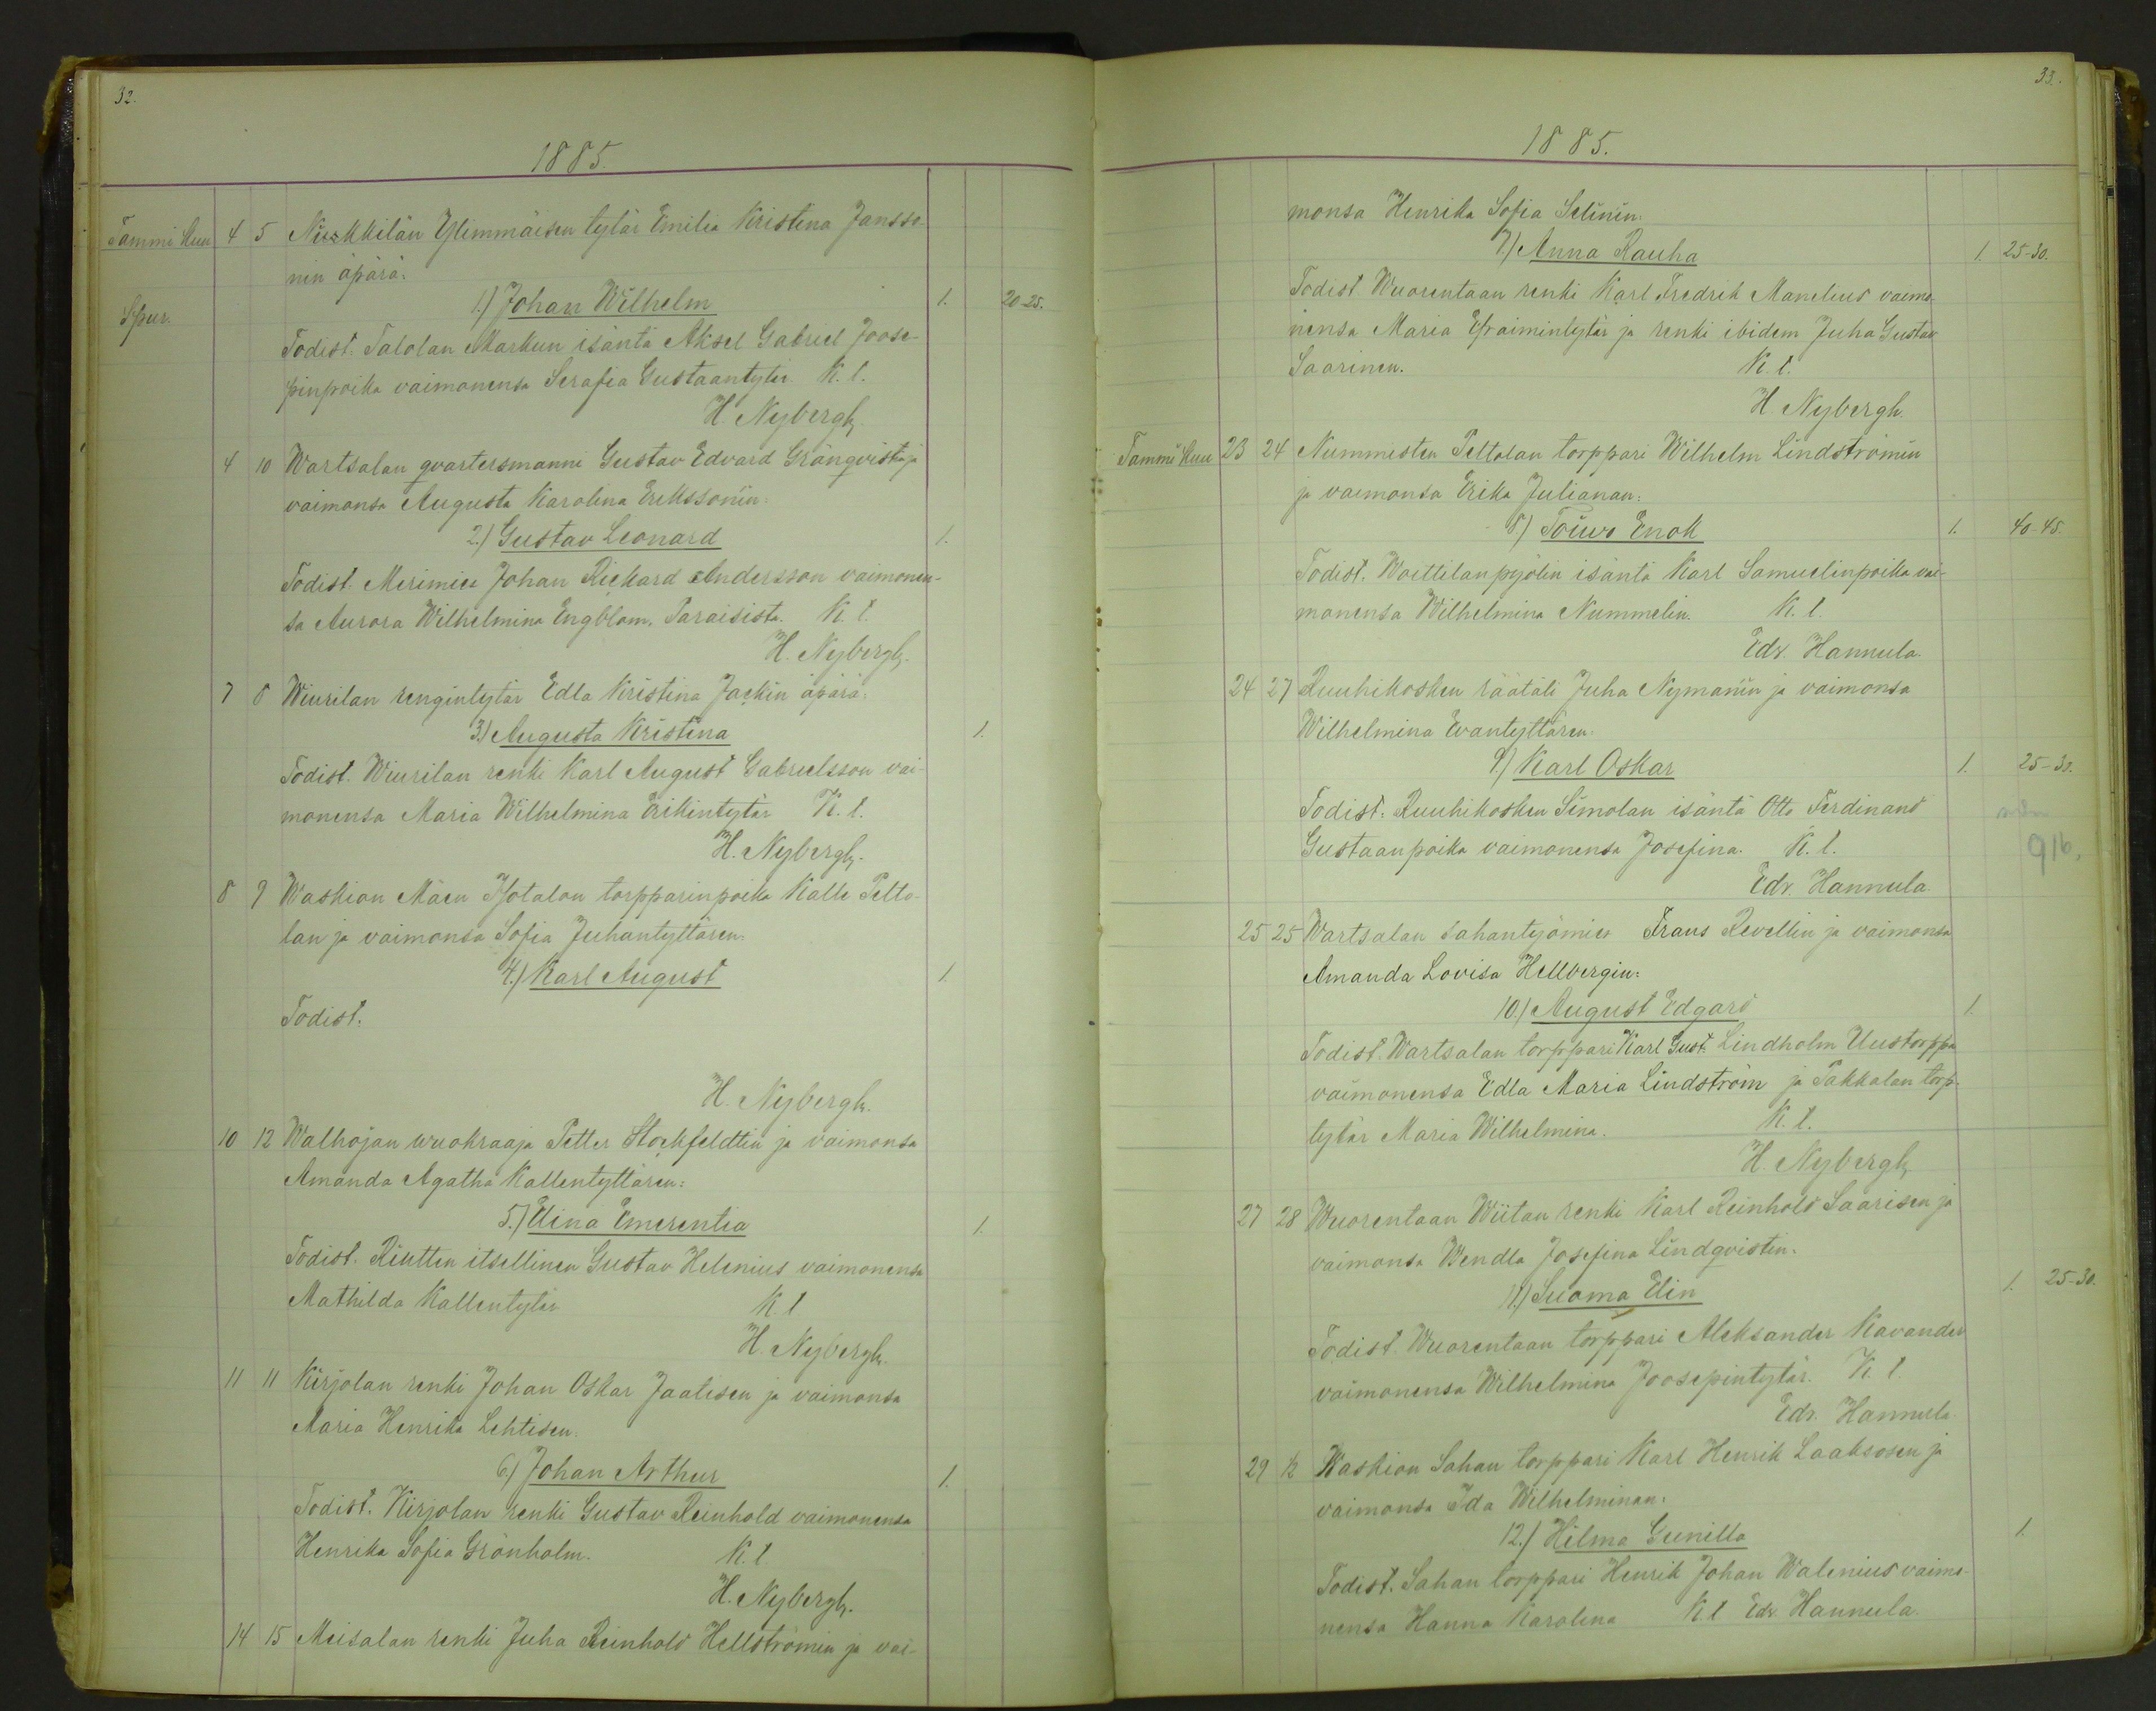 32.
1885.
Tammi kuu 4 5 Niskkilän Ylimmäisen tytär Emilia Kristina Jansso-
nin äpärä:
Spur. 1.) Johan Wilhelm 1. 20-25.
Todist. Talolan Markun isäntä Aksel Gabriel Joose-
pinpoika vaimonensa Serafia Gustaantytär. K. l.
H. Nybergh.
4 10 Wartsalan qvartersmanni Gustav Edvard Grönqvistin ja
vaimonsa Augusta Karolina Erikssonin:
2.) Gustav Leonard 1.
Todist. Merimies Johan Rickard Andersson vaimonen-
sa Aurora Wilhelmina Engblom, Paraisista. K. l.
H. Nybergh.
7 8 Wiurilan rengintytär Edla Kristina Jackin äpärä:
3.) Augusta Kristina 1.
Todist. Wiurilan renki Karl August Gabrielsson vai-
monensa Maria Wilhelmina Erikintytär K. l.
H. Nybergh.
8 9 Waskion Mäen Isotalon torpparinpoika Kalle Pelto-
lan ja vaimonsa Sofia Juhantyttären:
4.) Karl August 1.
Todist.
H. Nybergh.
10 12 Walhojan wuokraaja Petter Stockfeldtin ja vaimonsa
Amanda Agatha Kallentyttären:
5.) Elina Emerentia 1.
Todist. Riutten itsellinen Gustav Helenius vaimonensa
Mathilda Kallentytär K l
H. Nybergh.
11 11 Kirjolan renki Johan Oskar Jaatisen ja vaimonsa
Maria Henrika Lehtisen:
6.) Johan Arthur 1.
Todist. Kirjolan renki Gustav Reinhold vaimonensa
Henrika Sofia Grönholm. K. l.
H. Nybergh.
14 15 Meisalan renki Juha Reinhold Hellströmin ja vai-
33.
1885.
monsa Henrika Sofia Selinin:
7.) Anna Rauha 1. 25-30.
Todist. Wuorentaan renki Karl Fredrik Manelius vaimo-
nensa Maria Efraimintytär ja renki ibidem Juha Gustav
Saarinen. K. l.
H Nybergh.
Tammi kuu 23 24 Nummisten Peltolan torppari Wilhelm Lindströmin
ja vaimonsa Erika Julianan:
8.) Toiwo Enok 1. 40-45.
Todist. Woittilanpyölin isäntä Karl Samuelinpoika vai-
monensa Wilhelmina Nummelin. K. l.
Edv. Hannula.
24 27 Ruuhikosken räätäli Juha Nymanin ja vaimonsa
Wilhelmina Evantyttären:
9.) Karl Oskar 1. 25-30.
Todist. Ruuhikosken Simolan isäntä Otto Ferdinand
Gustaanpoika vaimonensa Josefina. K. l. 916.
Edv. Hannula
25 25 Wartsalan sahantyömies Frans Revellin ja vaimonsa
Amanda Lovisa Hellbergin:
10.) August Edgard 1.
Todist. Wartsalan torppari Karl Gust. Lindholm Uustorppa
vaimonensa Edla Maria Lindström ja Pakkalan torp.
tytär Maria Wilhelmina. K. l.
H. Nybergh
27 28 Wuorentaan Wiitan renki Karl Reinhold Saarisen ja
vaimonsa Wendla Josefina Lindqvistin.
11.) Suoma Elin 1. 25-30.
Todist. Wuorentaan torppari Aleksander Kavander
vaimonensa Wilhelmina Joosepintytär. K. l.
Edv. Hannula
29 1/2 Waskion Sahan torppari Karl Henrik Laaksosen ja
vaimonsa Ida Wilhelminan:
12.) Hilma Gunilla 1.
Todist. Sahan torppari Henrik Johan Walenius vaimo-
nensa Hanna Karolina K l Edv. Hannula.